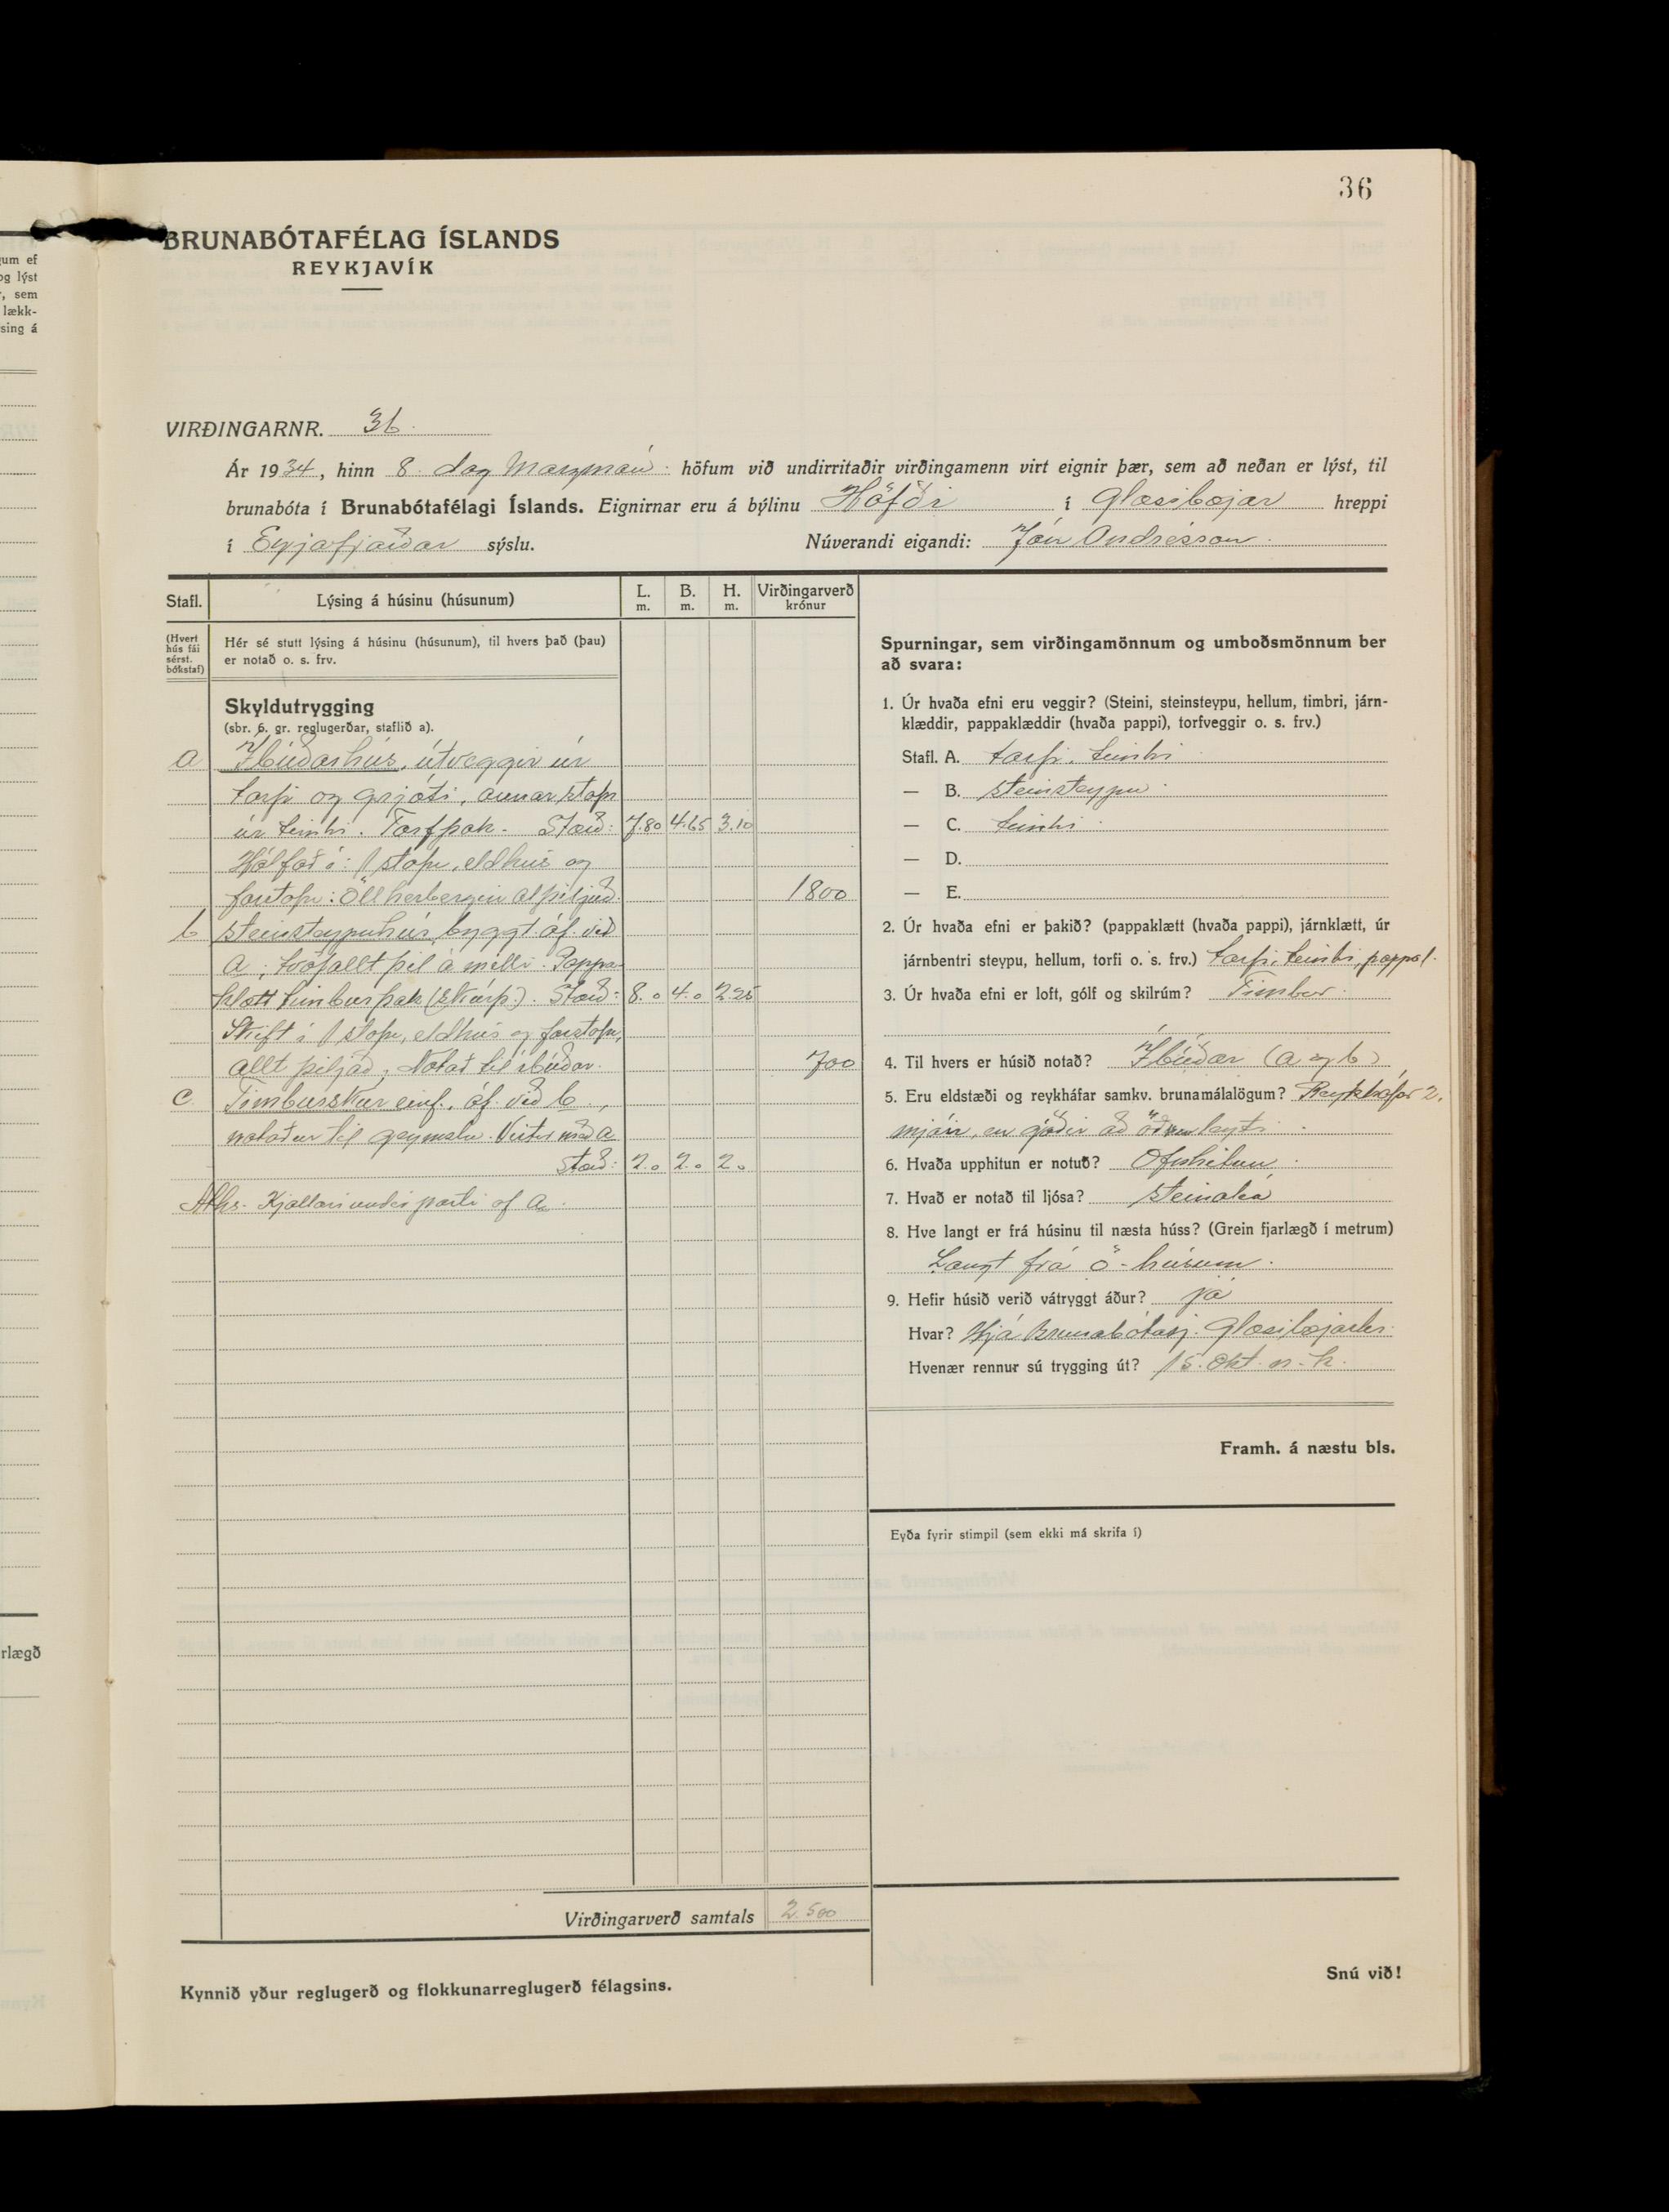 36
BRUNABÓTAFÉLAG ÍSLANDS
REYKJAVÍK
VIRÐINGARNR. 36.
Ár 1934, hinn 8. dag Marzmán. höfum við undirritaðir virðingamenn virt eignir þær, sem að neðan er lýst, til
brunabóta í Brunabótafélagi Íslands. Eignirnar eru á býlinu Höfði í Glæsibæjar hreppi
í Eyjafjarðar sýslu. Núverandi eigandi: Jón Andrésson.
Stafl. Lýsing á húsinu (húsunum) L. m. B. m. H. m. Virðingarverð krónur
(Hvert hús fái sérst. bókstaf)
Hér sé stutt lýsing á húsinu (húsunum), til hvers það (þau)
er notað o. s. frv.
Skyldutrygging
(sbr. 6. gr. reglugerðar, staflið a).
a Íbúðarhús, útveggir úr
torfi og grjóti, annar stafn
úr timbri. Torfþak. Stærð: 7.80 4.65 3.10
Hólfað í: 1 stofu, eldhús og
forstofu: Öll herbergin alþiljuð. 1800
b Steinsteypuhús, byggt áf. við
a; tvöfallt þil á milli. Pappa
klætt timburþak (skúrþ.). Stærð: 8.0 4.0 2.25
Skift í 1 stofu, eldhús og forstofu,
allt þiljað; Notað til íbúðar. 700
c. Timburskúr einf. áf. við b.,
notaður til geymslu. Virtur með a
Stærð: 2.0 2.0 2.0
Aths. Kjallari undir parti af a.
Virðingarverð samtals 2.500
Kynnið yður reglugerð og flokkunarreglugerð félagsins.
Spurningar, sem virðingamönnum og umboðsmönnum ber
að svara:
1. Úr hvaða efni eru veggir? (Steini, steinsteypu, hellum, timbri, járn-
klæddir, pappaklæddir (hvaða pappi), torfveggir o. s. frv.)
Stafl. A. torfi. timbri
— B. steinsteypu.
— C. timbri.
— D.
— E.
2. Úr hvaða efni er þakið? (pappaklætt (hvaða pappi), járnklætt, úr
járnbentri steypu, hellum, torfi o. s. frv.) torfi, timbri, pappal.
3. Úr hvaða efni er loft, gólf og skilrúm? Timbur.
4. Til hvers er húsið notað? Íbúðar (a og b)
5. Eru eldstæði og reykháfar samkv. brunamálalögum? Reykháfar 2,
mjóir, en góðir að öðru leyti.
6. Hvaða upphitun er notuð? Ofnhitun.
7. Hvað er notað til ljósa? steinolía
8. Hve langt er frá húsinu til næsta húss? (Grein fjarlægð í metrum)
Langt frá ö-húsum.
9. Hefir húsið verið vátryggt áður? já
Hvar? Hjá Brunabótasj. Glæsibæjarhr.
Hvenær rennur sú trygging út? 15. Okt. n. k.
Framh. á næstu bls.
Eyða fyrir stimpil (sem ekki má skrifa í)
Snú við!